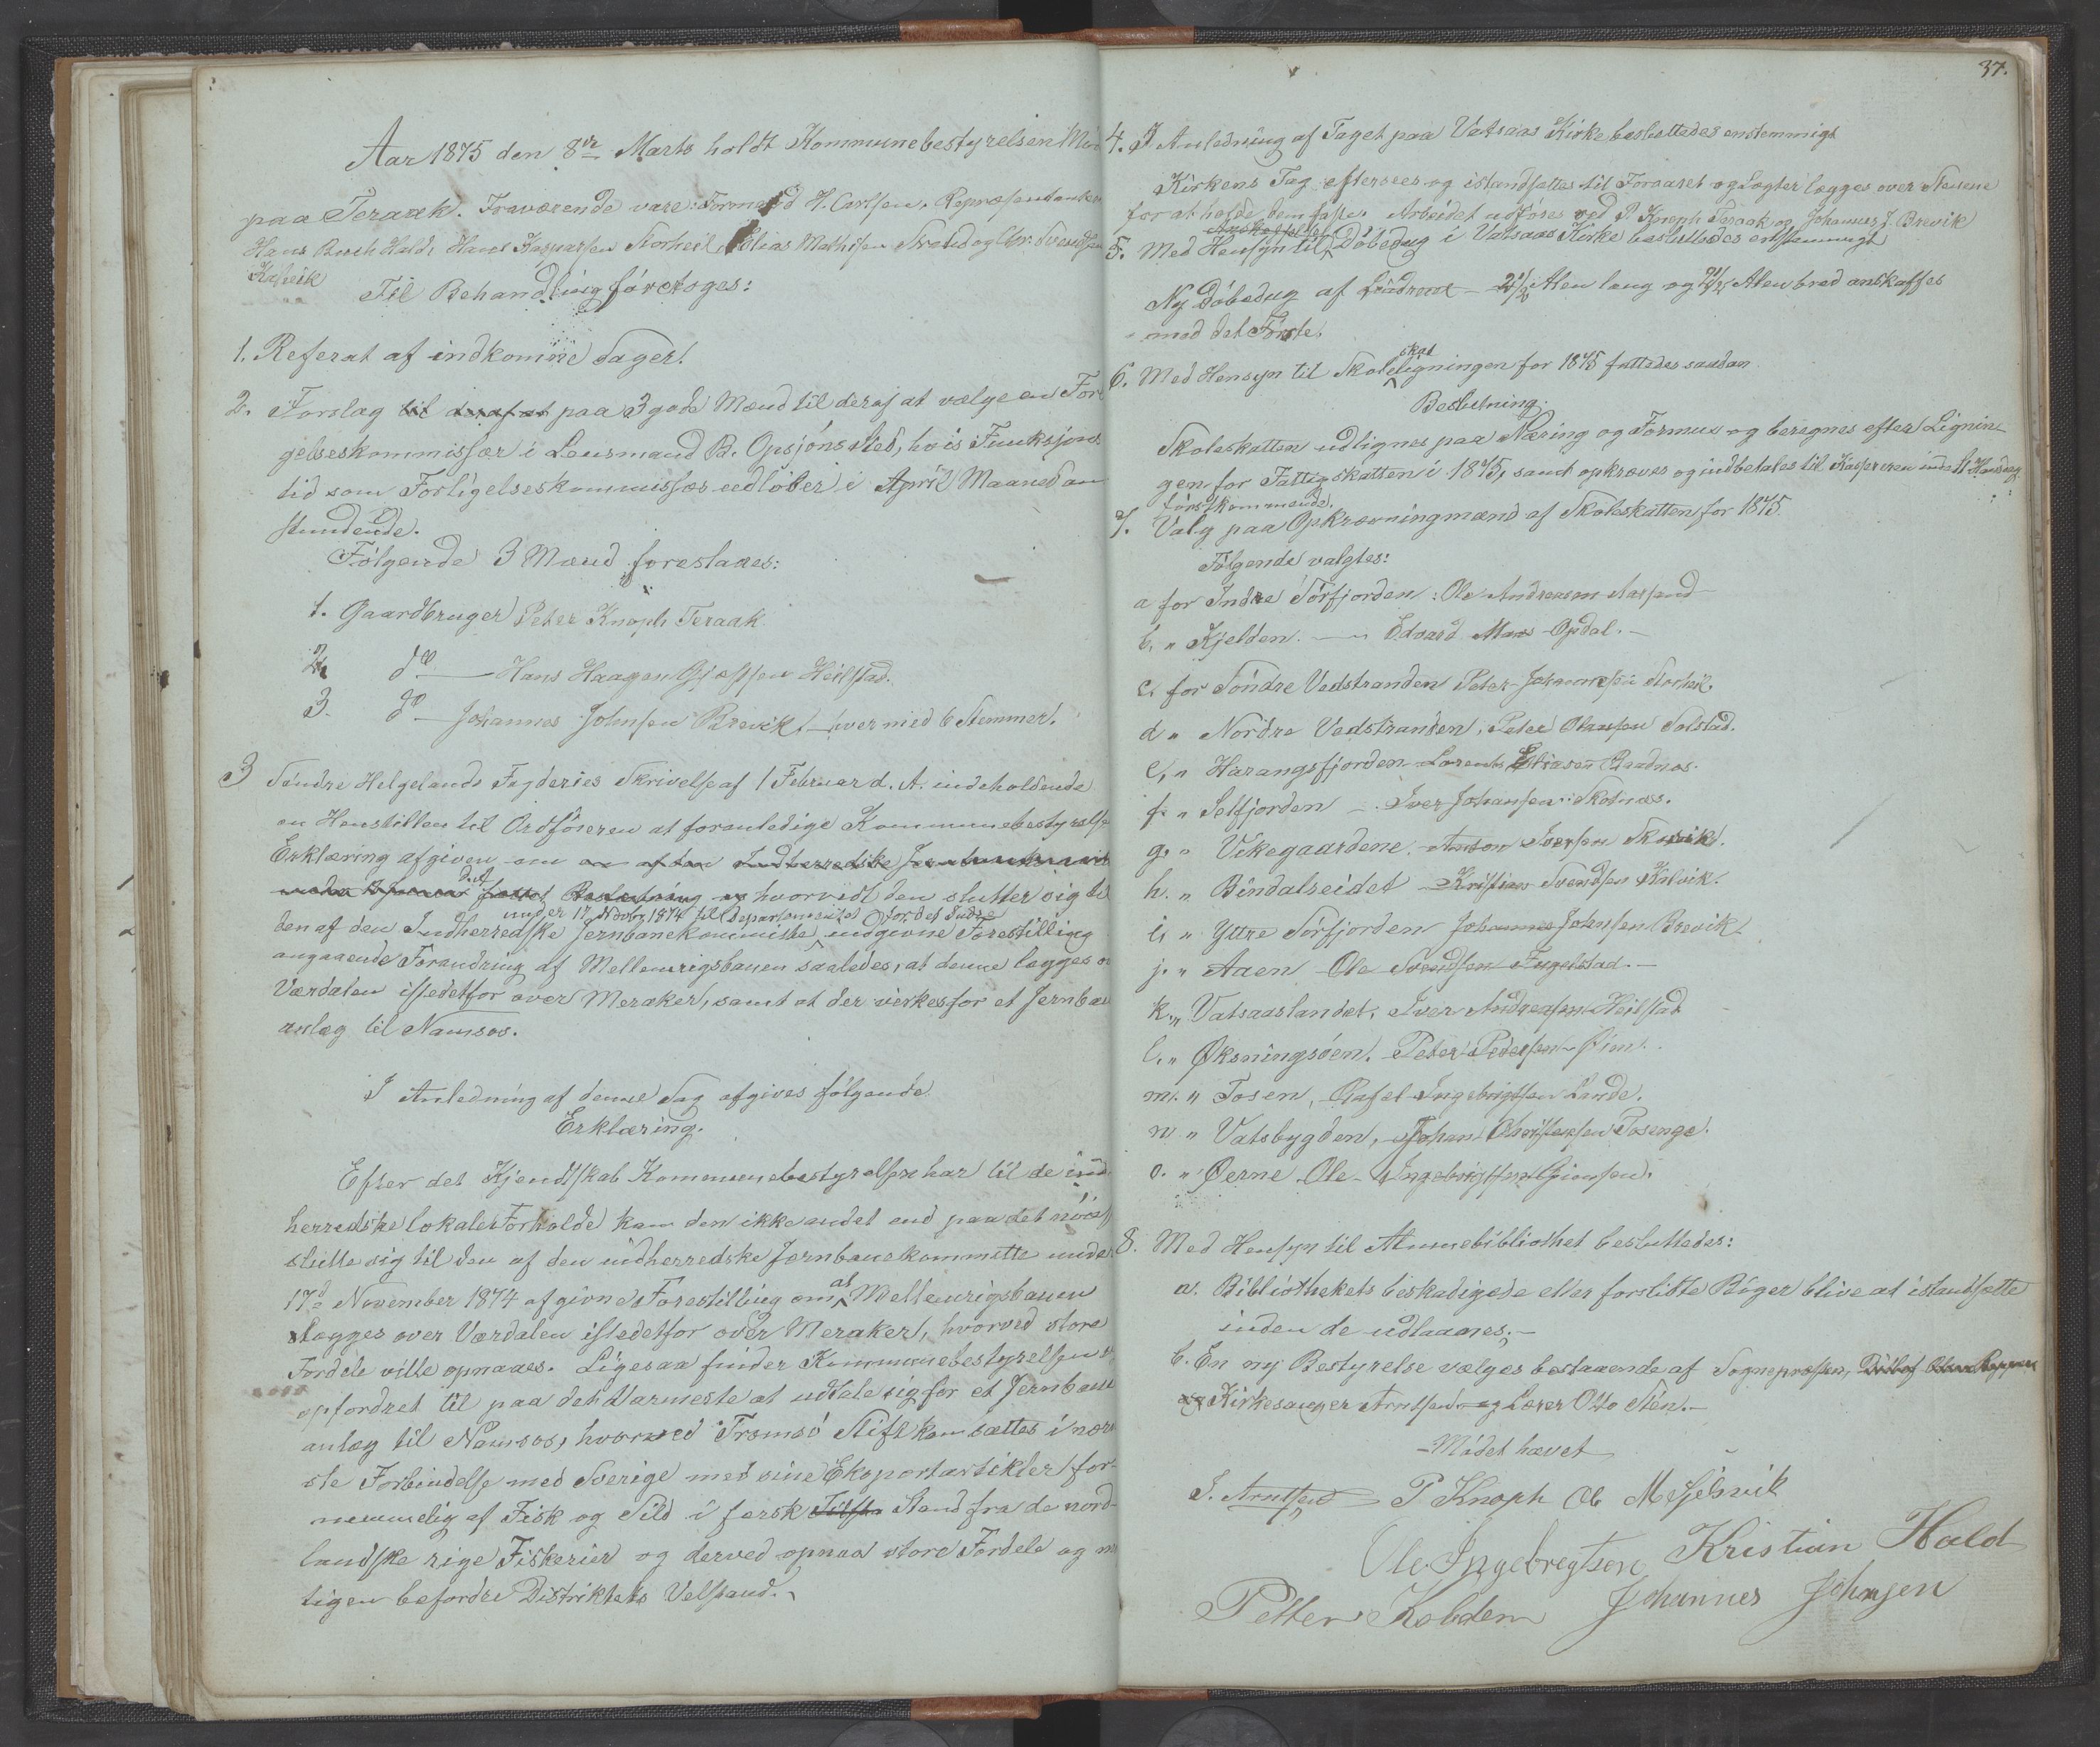 Aar 1875 den 8de Marts holdt Kommunebestyrelsen
paa Teraak. Fraværende vare: Formand H. Carlsen, Repræsentanter
Hans Buch Hald, Hans Kasparsen Storheil, Elias Mathisen Strand og Chr. Svendsen
Kalvik
Til Behandling foretoges:
1. Referat af indkomne Sager.
2. Forslag til deraf at paa 3 gode Mænd til deraf at vælge en For
gelseskommissær i Lensmand B. Opsjøns sted, hvis Funksjons
tid som Forligelseskommissær udløber i April Maaned an
stundende.
Følgende 3 Mænd foreslaaes:
1. Gaardbruger Peter Knoph Teraak
2. do — Hans Haagen Heilstad.
3. do — Johannes Johnsen Brevik — hver med 6 Stemmer.
3 Søndre Helgelands Fogderies Skrivelse af 1 Februar d. A. indeholdende
en Henstillen til Ordføreren at foranledige Kommunebestyrelse
Erklæring afgiven om
Beslutning og hvorvidt den slutter sig til
under 17 Novbr 1874 til Departementet for det Indre
den af den Indherredske Jernbanekommitte indgivne Forestilling
angaaende Forandring af Mellemrigsbanen saaledes, at denne lægges o
Værdalen istedetfor over Meraker, samt at der virkes for et Jernban
anlæg til Namsos.
I Anledning af denne Sag afgives følgende
Erklæring.
Efter det Kjendtskab Kommunebestyrelsen har til de ind
herredske lokale Forholde kan den ikke andet end paa det nøies
slutte sig til den af den indherredske Jernbanekommitte under
17d November 1874 afgivne Forestilling om at Mellemrigsbanen
lægges over Værdalen istedetfor over Meraker, hvorved store
Fordele ville opnaaes. Ligesaa finder Kommunebestyrelsen s
opfordret til paa det Varmeste at udtale sig for et Jernbane
anlæg til Namsos, hvorved Tromsø Stift kan sættes i nærm
ste Forbindelse med Sverige med sine Eksportartikler for-
nemmelig af Fisk og Sild i fersk Stand fra de nord-
landske rige Fiskerier og derved opnaa store Fordele og m
tigen befordre Distriktets Velstand.
37.
4. I Anledning af Taget paa Vatsaas Kirke besluttedes enstemmigt
Kirkens Tag eftersees og istandsættes til Foraaret og Lægter lægges over Stenene
for at holde dem faste. Arbeidet udføres ved P. Knoph Teraak og Johannes J. Brevik
Anskaffelse af
5. Med Hensyn til Døbedug i Vatsaas Kirke besluttedes enstemmigt
Ny Døbedug af 2 1/2 Alen lang og 2 1/2 Alen bred anskaffes
med det Første.
6. Med Hensyn til Skoleskatligningen for 1875 fattedes saadan
Beslutning.
Skoleskatten udlignes paa Næring og Formue og beregnes efter Lignin-
gen for Fattigskatten i 1875, samt opkræves og indbetales til Kassereren inden
førstkommende.
7. Valg paa Opkrævningmænd af Skoleskatten for 1875.
Følgende valgtes:
a for Indre Tørfjorden: Ole Andreassen Aarsand
b. " Kjelden. — " Edvard Opdal. —
c. for Søndre Vedstranden Peter Johannesen Storheil.
d " Nordre Vedstranden, Peter Olausen Solstad.
e, " Harangsfjorden Lorents Eliasen Baadnæs.
f. " Selfjorden — Iver Johansen Skotnæs.
g. " Vikegaardene. Anton Iversen Skarvik.
h. " Bindalseidet Kristian Svendsen Kalvik.
i. " Yttre Tørfjorden Johannes Johnsen Brevik.
j. " Aaen Ole Svendsen Fuglstad. —
k. " Vatsaaslandet, Iver Andreasen Heilstad
l. " Øksningsøen, Peter Pedersen
m. " Tosen, Rafel Ingebrigtsen Lande.
n " Vatsbygden, Johan Christensen Posenge.
o. " Øerne Ole Ingebrigtsen Gimsen.
8. Med Hensyn til Almuebibliothek besluttedes:
a. Bibliothekets beskadigede eller forslidte Bøger blive at istandsætte
inden de udlaanes. —
b. En ny Bestyrelse vælges bestaaende af Sognepræsten,
og Kirkesanger Arntsen og Lærer Otto Stén. —
Mødet hævet
I. Arntsen P Knoph Ol Mefjelsvik
Ole Ingebregtsen Kristian Hald
Petter Kolden Johannes Johnsen